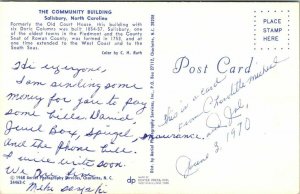 THE COMMUNITY BUILDING
Salisbury, North Carolina
Formerly the Old Court House, this building with
six Doric Columns was built 1854-57. Salisbury, one
of the oldest towns in the Piedmont and the County
Seat of Rowan County, was formed in 1753, and at
one time extended to the West Coast and to the
South Seas.
Color by C. H. Ruth
PLACE
STAMP
HERE
Post Card
Hi everyone,
I am sending some
money for you to pay
some bills. Daniel
Jewel Box, Spiegel, insurance.
and the phone bill.
I will write soon.
We love you
this is a card
from
June 3, 1970
© 1968 Aerial Photography Services, Charlotte, N. C.
Dist. by Aerial Photography Services, Inc., Charlotte, N.C.
dp
DEXTER PRESS, INC.